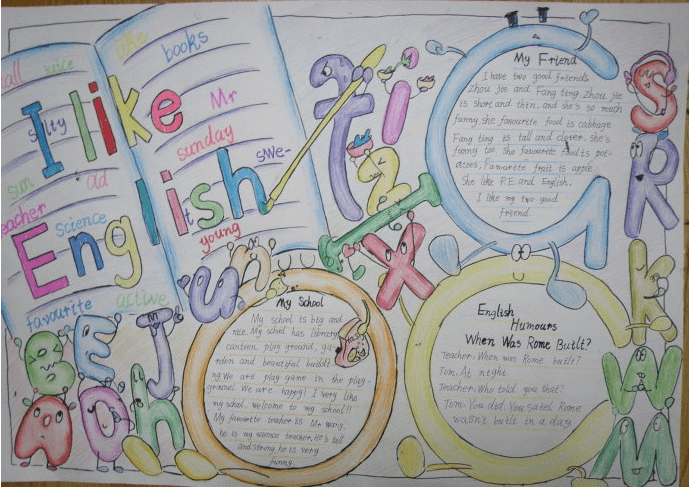 call juice
like books
I like
salty Mr
sunday
sun ad
swe-
teacher
science
English
young
favourite active
My Friend
I have two good friends
Zhou jie and Fang ting Zhou jie
is short and thin. and she's so much
funny she favourite food is cabbage
Fang ting is tall and clever. she's
funny too. She favourite food is pot-
atoes, Favourite fruit is apple
She like P.E. and English.
I like my two good
friend.
My School
My school is big and
nice. My school has library
canteen play ground, ga-
rden and beautiful buildi
ng We are play game in the play-
ground. We are happy! I very like
my school. welcome to my school!!
My favourite teacher is Mr Wang,
he is my science teacher. He's tall
and strong, he is very
funny.
English
Humours
When Was Rome Built?
Teacher: When was Rome built?
Tom: At night.
Teacher: Who told you that?
Tom: You did. You saied Rome
wasn't built in a day
t i
z
x
S
R
K
W
M
u n
B E J
A O h